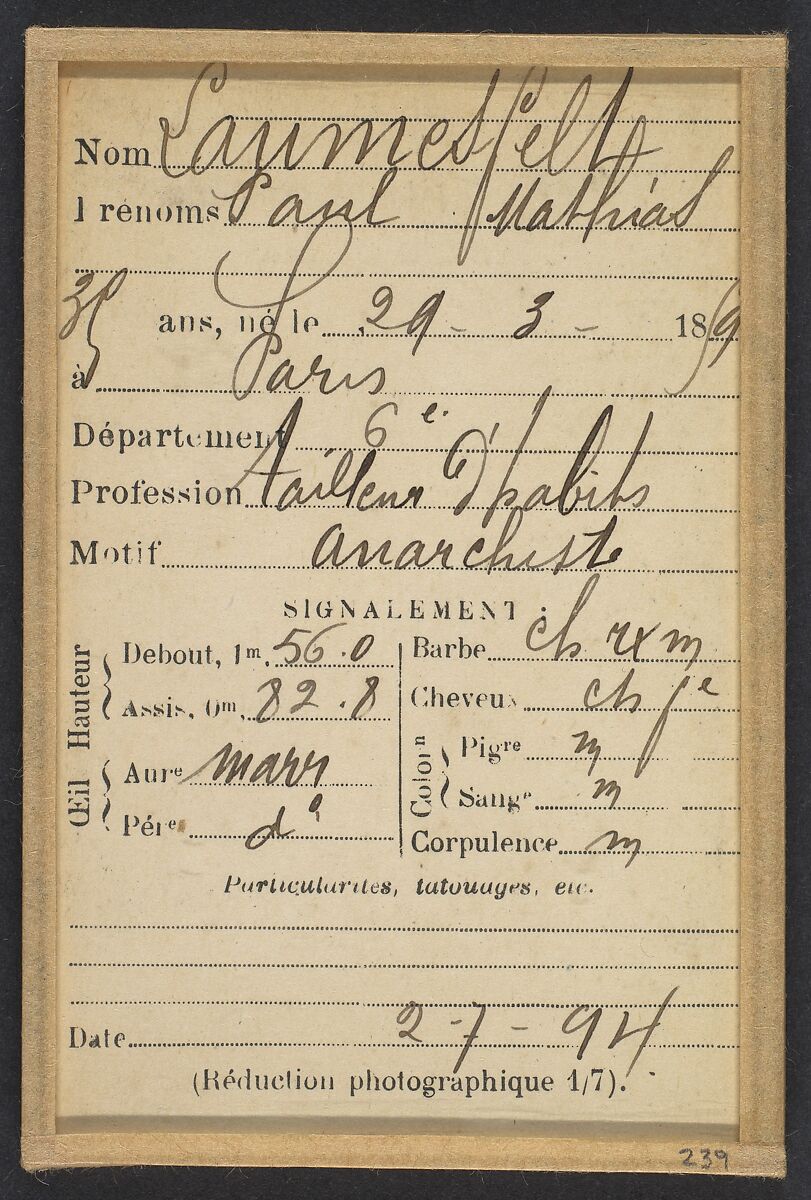 Nom Laumesfelt
Prénoms Paul Mathias
35 ans, né le 29 - 3 - 1859
à Paris
Département 6e
Profession tailleur d'habits
Motif anarchiste
SIGNALEMENT :
Hauteur
Debout, 1m, 56.0
Assis, 0m, 82.8
Œil
Aure marr
Pére do
Barbe ch rx m
Cheveux ch fe
Colorn
Pigre m
Sange m
Corpulence m
Particularités, tatouages, etc.
Date 2 - 7 - 94
(Réduction photographique 1/7).
239